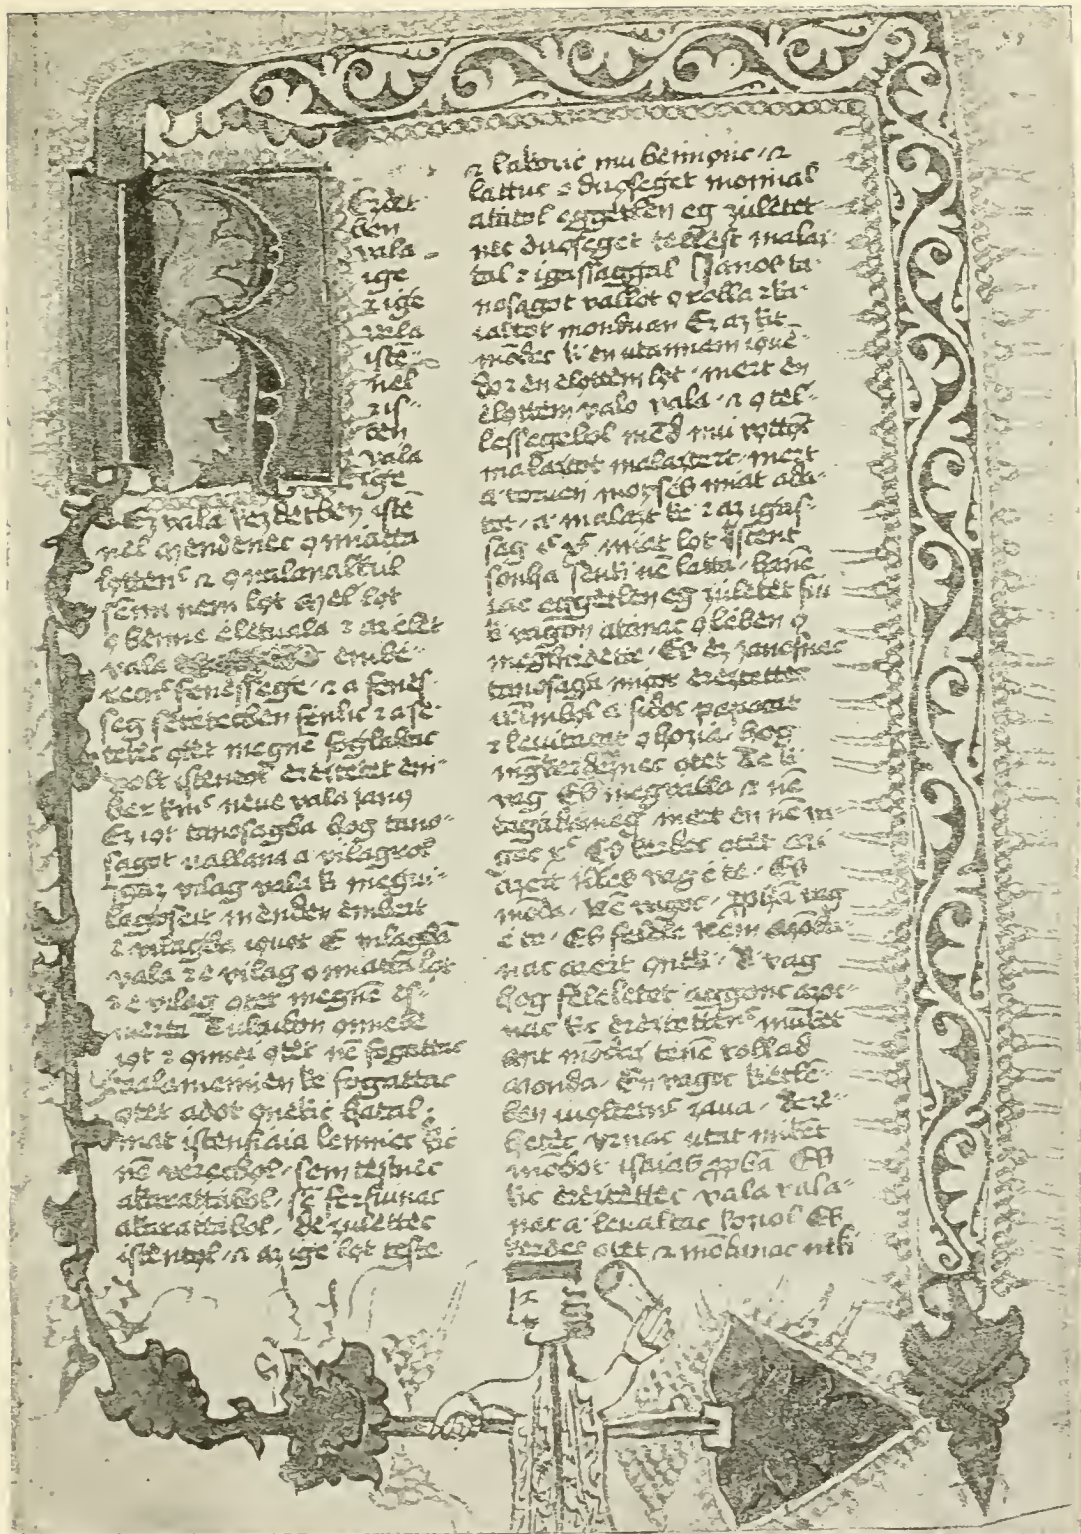 K
Ezdet
ben
vala
ige
z ige
vala
istē-
nel
z is-
ten
vala
Ez ige
Ez vala kezdetben istē
nel Mendenec o miatta
lottenc z o nalanalkul
semi nem lot Mel lot
o benne elet vala z az elet
vala embe-
recnc fenesseǵe · z a feńes-
seg setetecben fenlic z a se-
tetec otet megnē foglaltac
volt istentol ereztetet em-
ber kinc neue vala Janos
Ez iot tanosagba hog tano-
sagot vallana a vilagrol
Igaz vilag vala ki megui-
lagoseit menden embert
e vilagba iouot E vilagba
vala z e vilag o miatta lot
z e vilag otet megnē es-
merte Tulaidon
iot z otet nē fogattac
Valamenien ke fogattac
otet adot onekic hatal-
mat isten fiaia kic
nē verecbol · sem testnec
akarattabol · sē ferfiunac
akarattabol · de zulettec
istentol · z az ige lot teste
z lakozic mu bennonc · z
lattuc o ducseget moniual
atatol eggetlen eg zuletet
nec ducseget tellest malaz-
tal z igassaggal Janos ta-
nosagot vallot o rolla z ka-
ialtot monduan Ez az kit
mōdec ki en utannam iouē-
do z en elottem lot · mert en
elottem valo vala · z o tel-
lessegebol mēd mui vottoc
malaztot malaztert · mert
a toruen mozses miat ada-
tot · a malazt ke z az igas-
sag ić xc miat lot Istent
sonha senki nē latta · hanē
czac eggetlen eg zuletet fiu
ki vagon atanac oleben o
meghirdette · Es ez Janosnac
tanosaga · micor
a sidoc papocat
z leuitacat ohozia · hog
mgkerdeznec otet Te ki
vag Es megualla z nē
tagada meg mert en nē va-
goc xc Es kerdec otet mi
azert Illes vag e te · Es
mōda · Nē vagoc · ppha vag
e te · Es felele Nem Mōda-
nac azert onki · Ki vag
hog feleletet aggonc azoc-
nac kic ereztettenc mūket
mit mōdaz tēnē rollad
Monda · En vagoc kietlē-
ben iuoltonc zaua ·
vrnac utat mikēt
mōdot isaias ppha Es
kic ereztettec vala vala-
nac a leualtac kozzol Es
kerdec otet z mōdanac neki